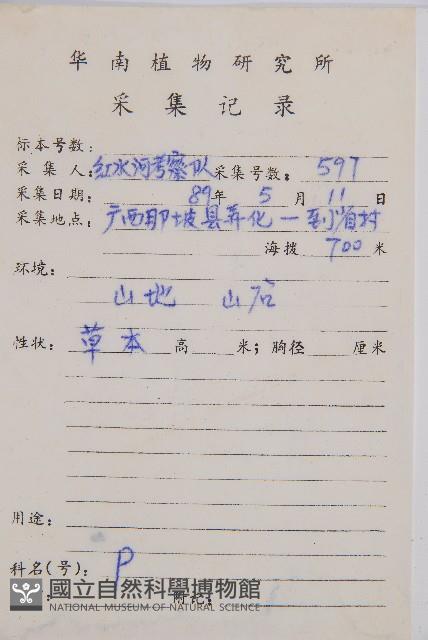 华南植物研究所
采集记录
标本号数:
采集人:红水河考察队采集号数:597
采集日期: 89年 5 月 11 日
采集地点:广西那坡县弄化一到省村
海拨 700 米
环境:
山地 山后
性状: 草本 高 米; 胸径 厘米
用途:
科名(号): P
國立自然科學博物館
附记:
NATIONAL MUSEUM OF NATURAL SCIENCE